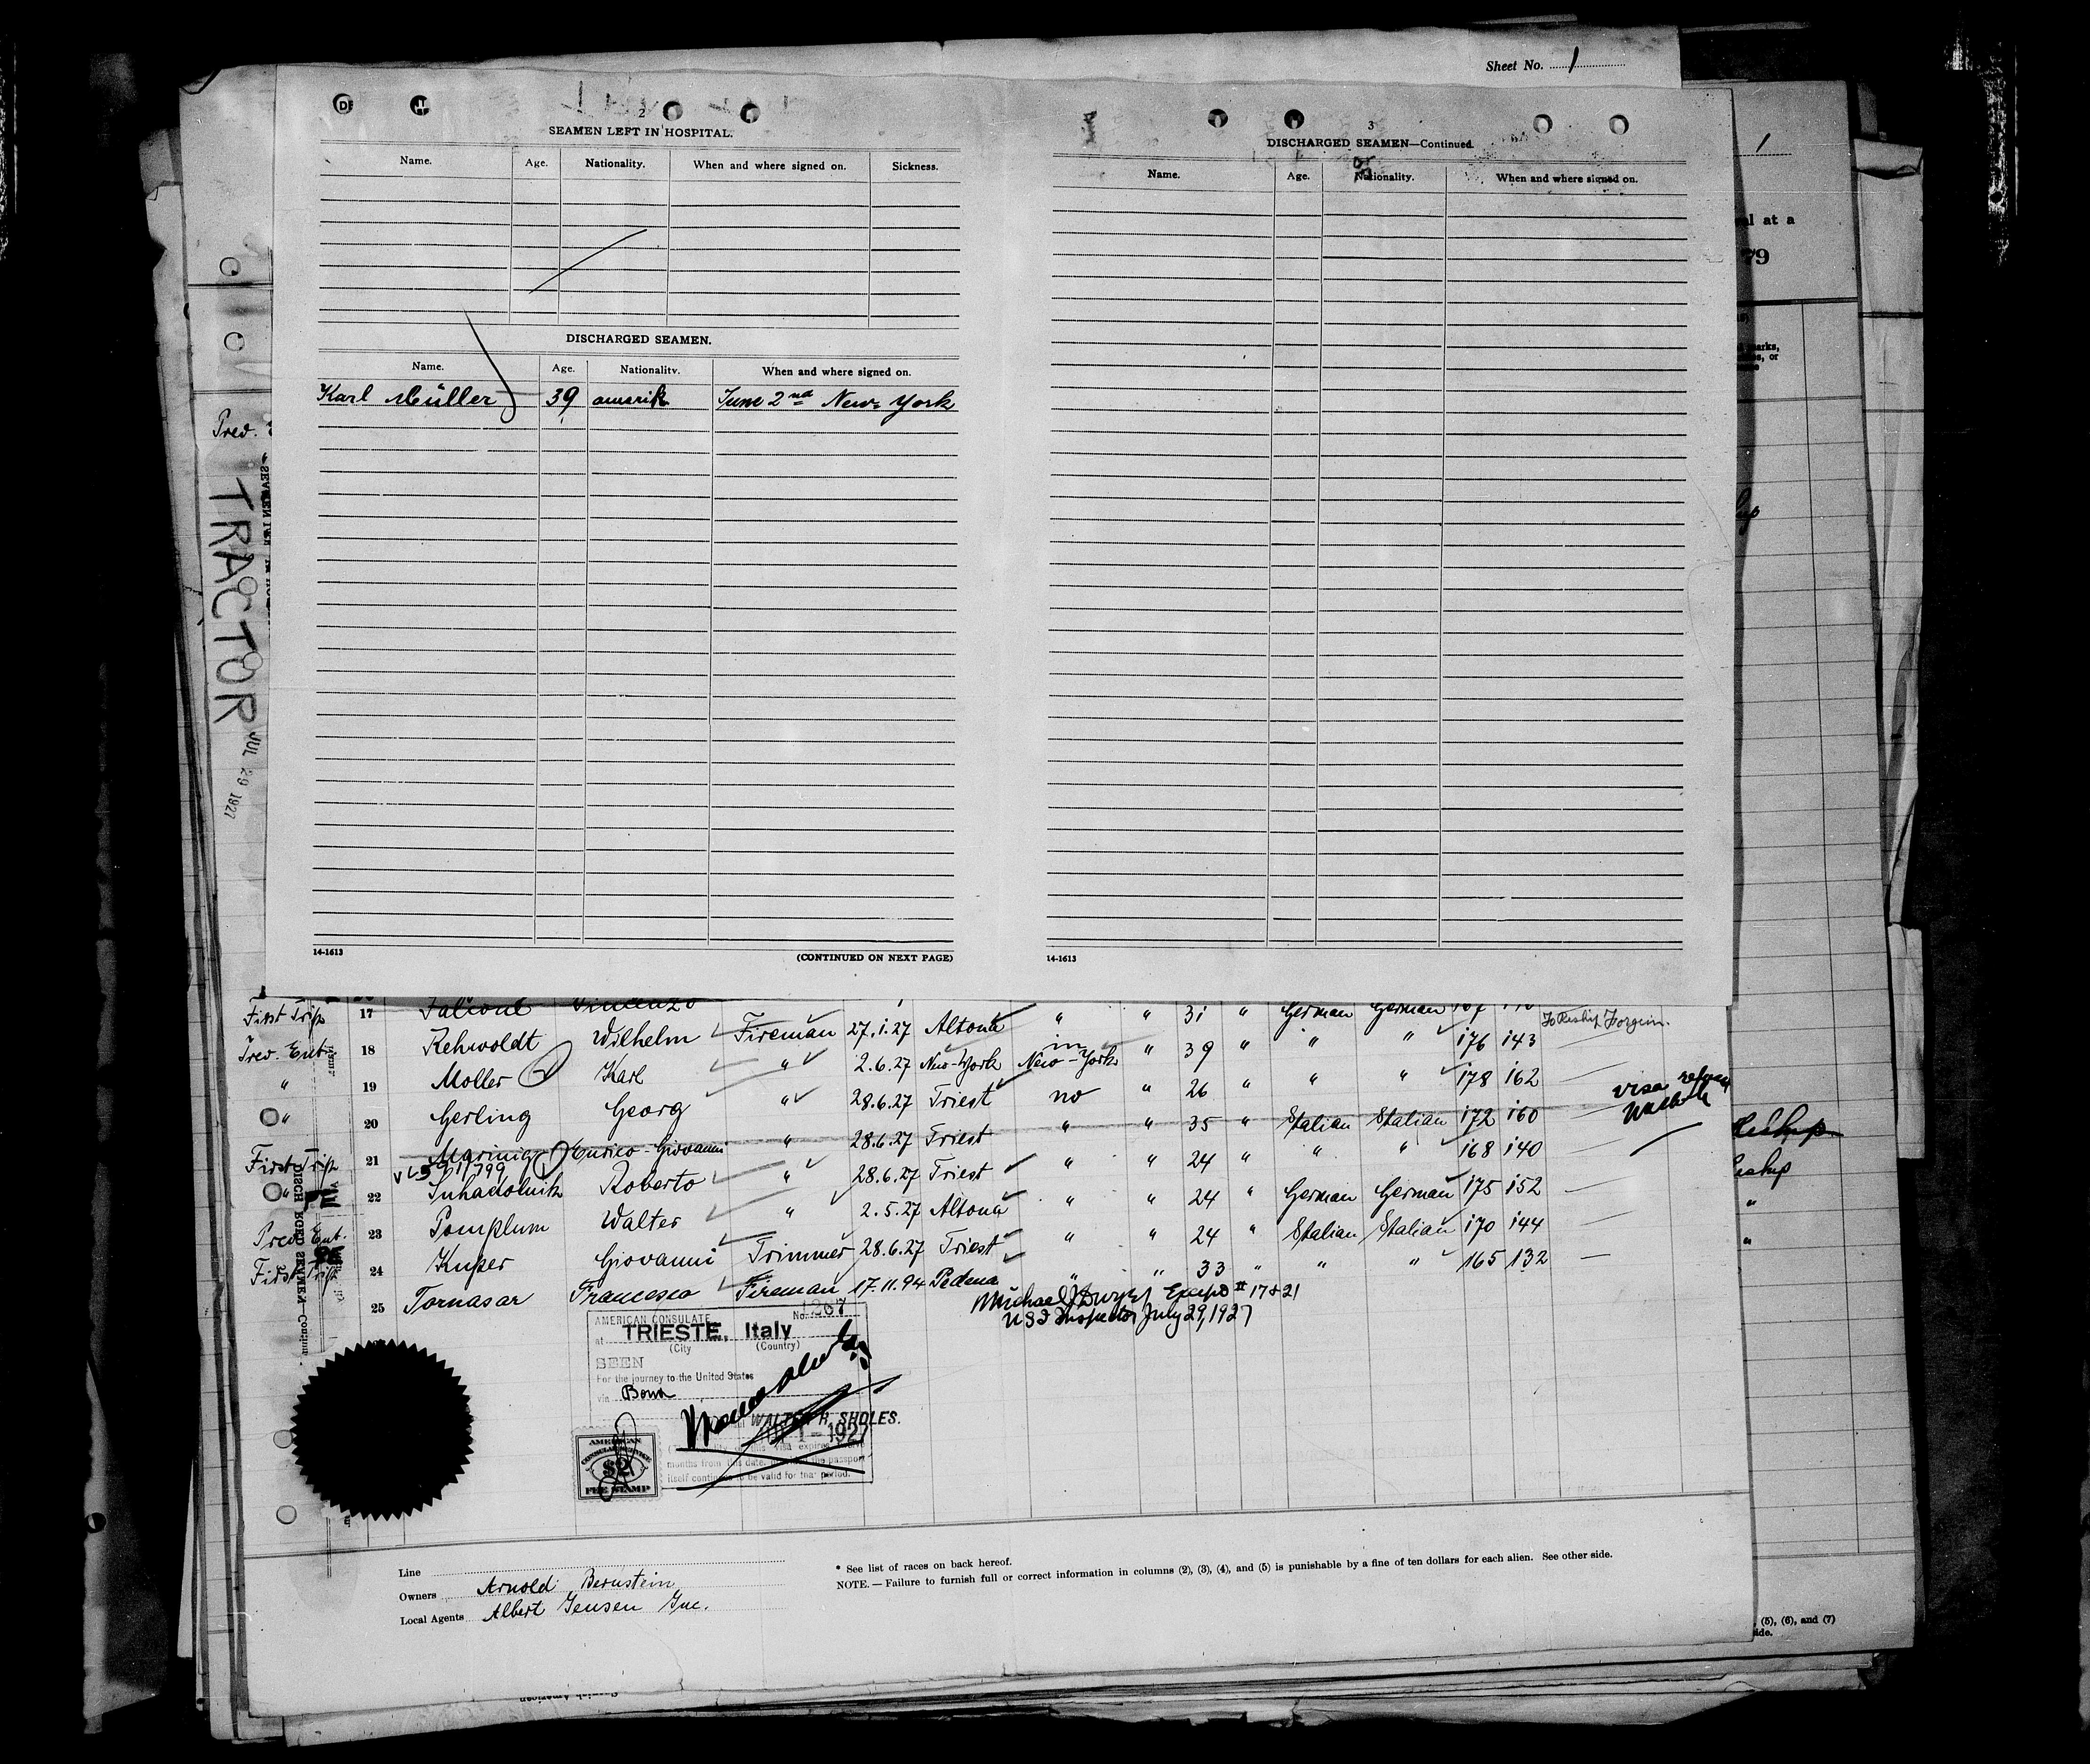 Sheet No. 1
2
SEAMEN LEFT IN HOSPITAL.
Name. Age. Nationality. When and where signed on. Sickness.
DISCHARGED SEAMEN.
Name. Age. Nationality. When and where signed on.
Karl Müller 39 amerik June 2nd New-York
14-1613 (CONTINUED ON NEXT PAGE)
3
DISCHARGED SEAMEN—Continued.
Name. Age. Nationality. When and where signed on.
14-1613
1
al at a
79
Pred.
TRACTOR
JUL 29 1927
First Trip 17 Falcone Vincenzo
18 Rehwoldt Wilhelm Fireman 27.1.27 Altona " " 31 " German German 167
To Reship Foreign.
Pred. Ent. 19 Moller Karl " 2.6.27 New-York in New-York " 39 " " " 176 143
" 20 Gerling Georg " 28.6.27 Triest no " 26 " " " 178 162
" 21 Marinig Enrico-Giovanni " 28.6.27 Triest " " 35 " Italian Italian 172 160 visa
First Trip 22 Suhadolnik Roberto " 28.6.27 Triest " " 24 " " " 168 140
" 23 Pomplum Walter " 2.5.27 Altona " " 24 " German German 175 152
Pred. Ent. 24 Kuper Giovanni Trimmer 28.6.27 Triest " " 24 " Italian Italian 170 144
First Trip 25 Tornasar Francesco Fireman 17.11.94 Pedena " " 33 " " " 165 132
Michael J Dwyer Except # 17 & 21
USI Inspector July 29, 1927
Reship
"
"
DISCHARGED SEAMEN—Continued
AMERICAN CONSULATE No. 1207
at TRIESTE, Italy
(City (Country)
SEEN
For the journey to the United States
via Bona
WALTER H. SHOLES.
1 - 1927
visa expires
months from this date. the passport
itself continues to be valid for that period.
AMERICAN
CONSULAR SERVICE
$2
FEE STAMP
Line
Owners Arnold Bernstein
Local Agents Albert Jensen Inc.
* See list of races on back hereof.
NOTE.—Failure to furnish full or correct information in columns (2), (3), (4), and (5) is punishable by a fine of ten dollars for each alien. See other side.
, (5), (6), and (7)
side.